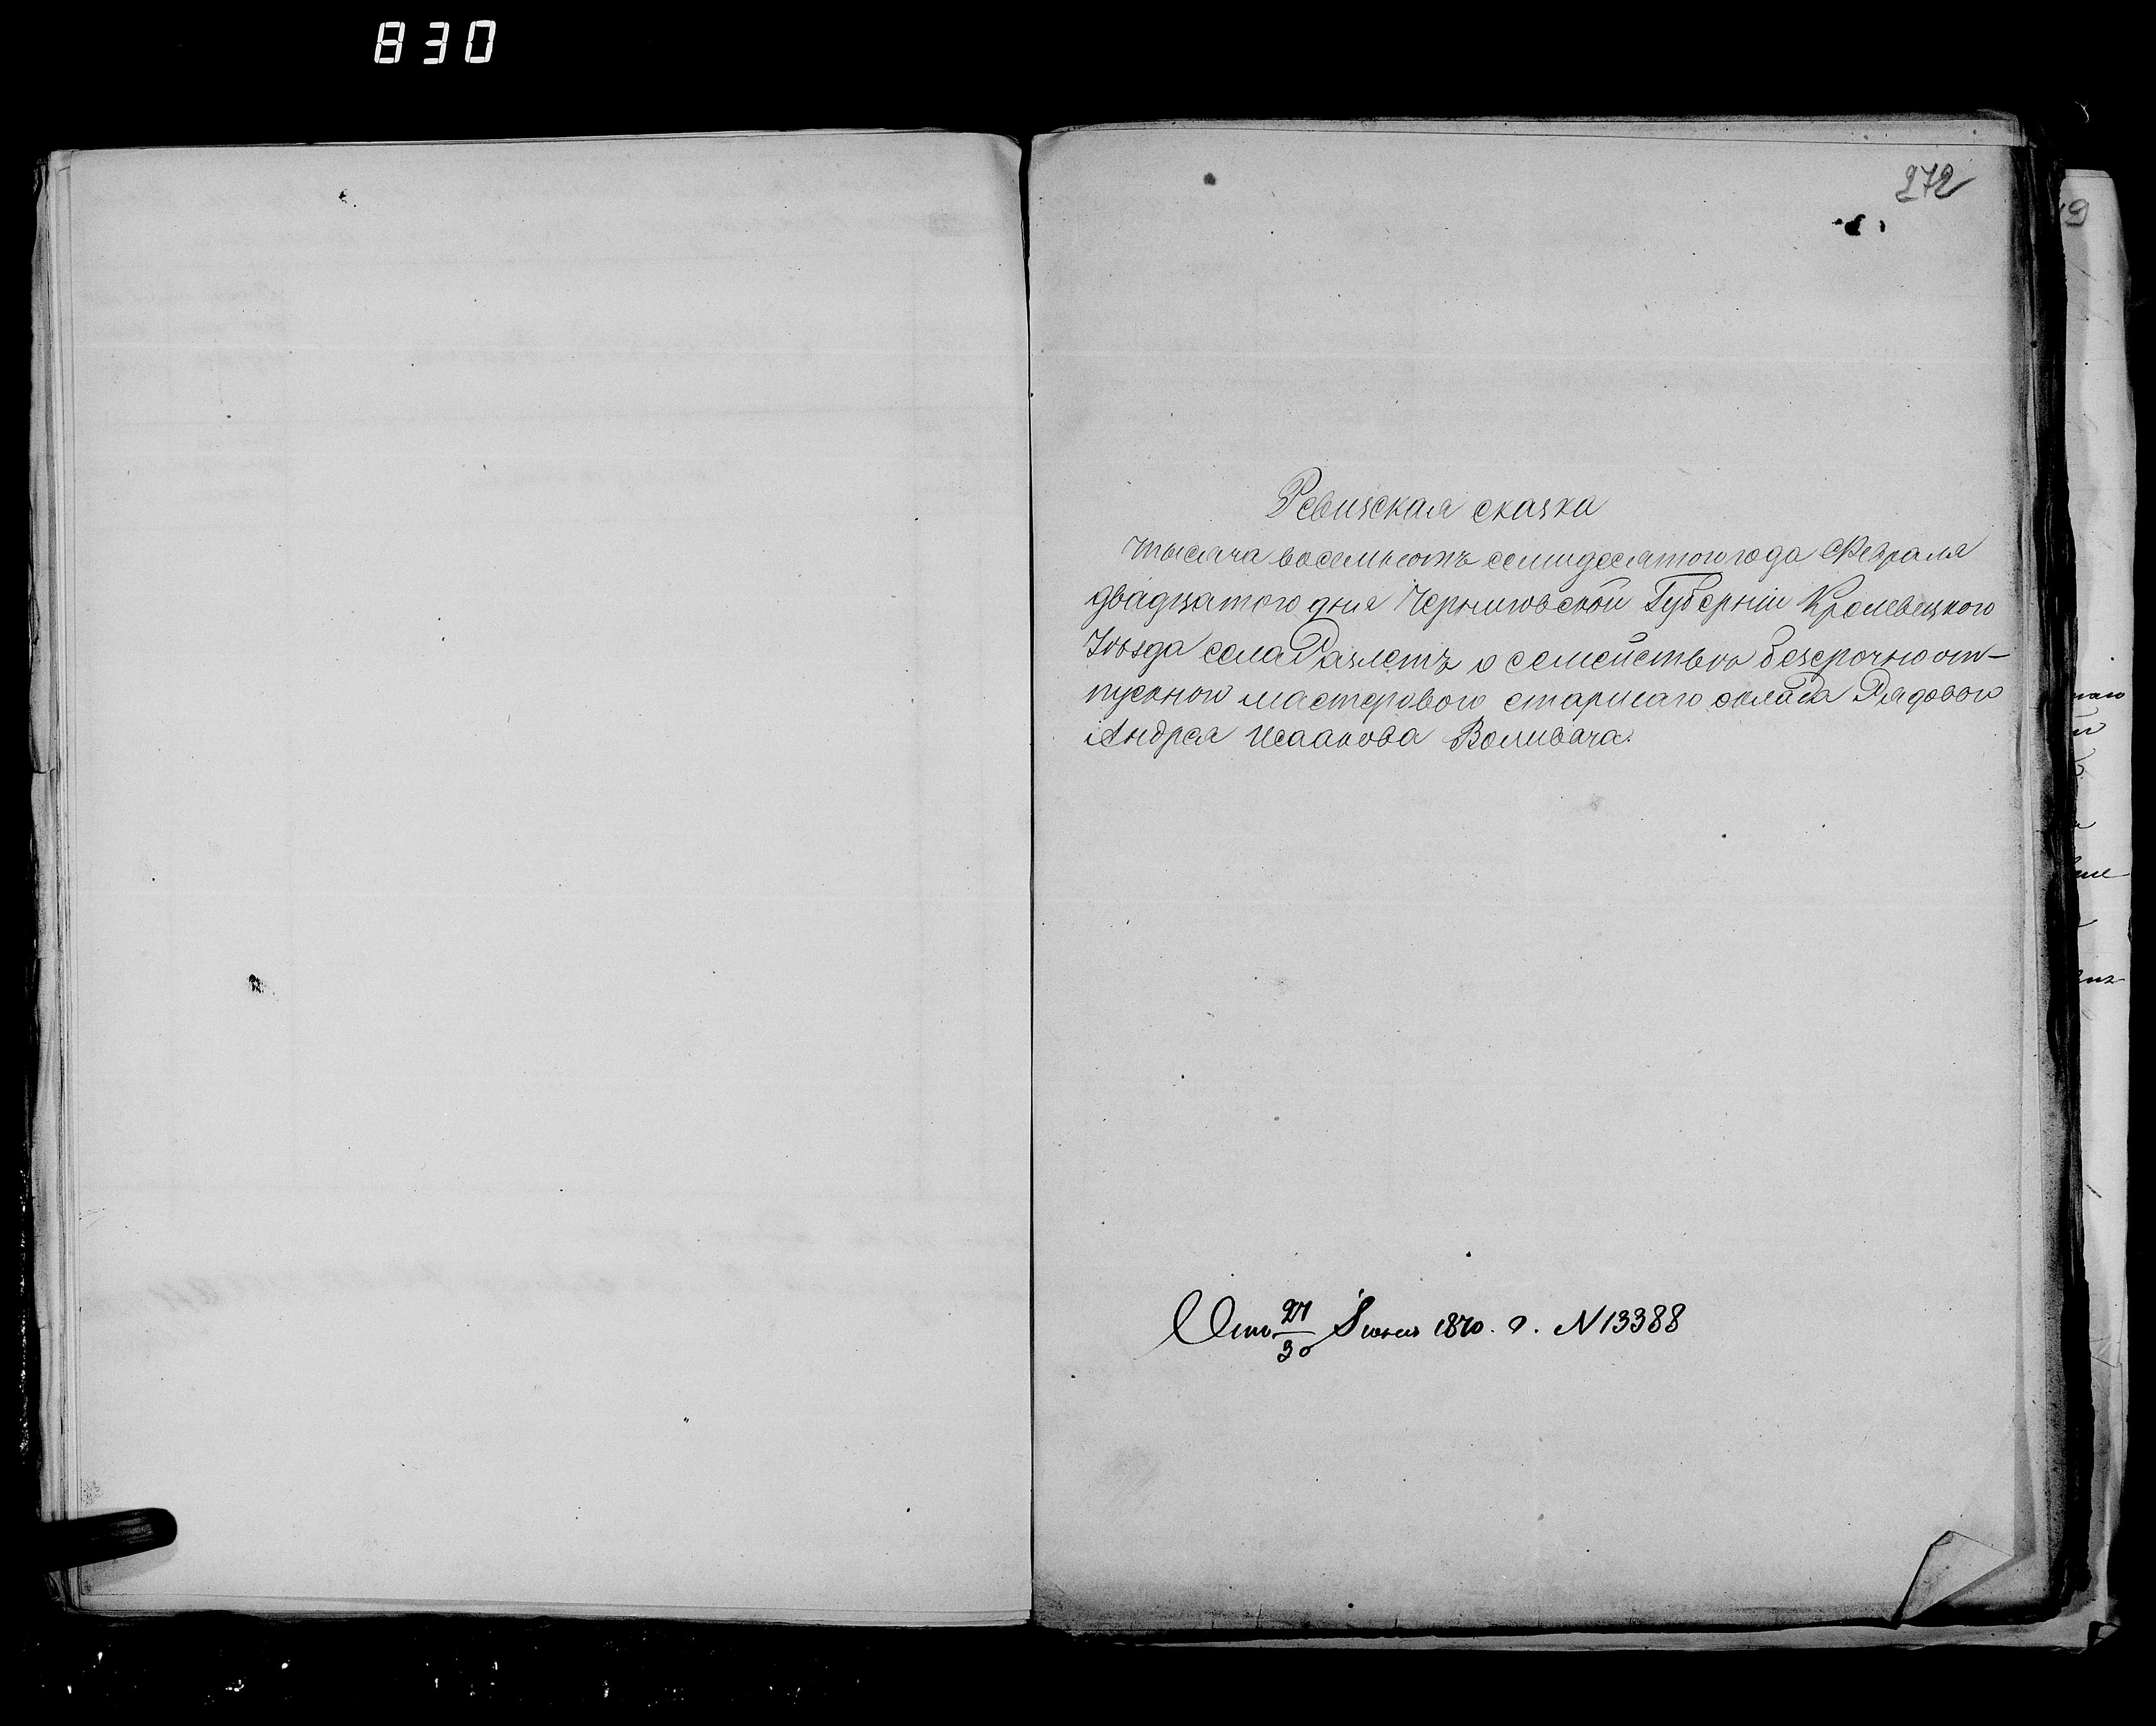 830
272
Ревизская сказка
тысяча восемьсотъ семидесятого года Февраля
двадцатого дня Черниговской Губерніи Кролевецкого
Уѣзда села Разлетъ о семействѣ безсрочно от-
пускного мастерового старшаго оклада Рядового
Андрея Исаакова Воливача.
Отъ 27/30 Іюня 1870. г. N 13388